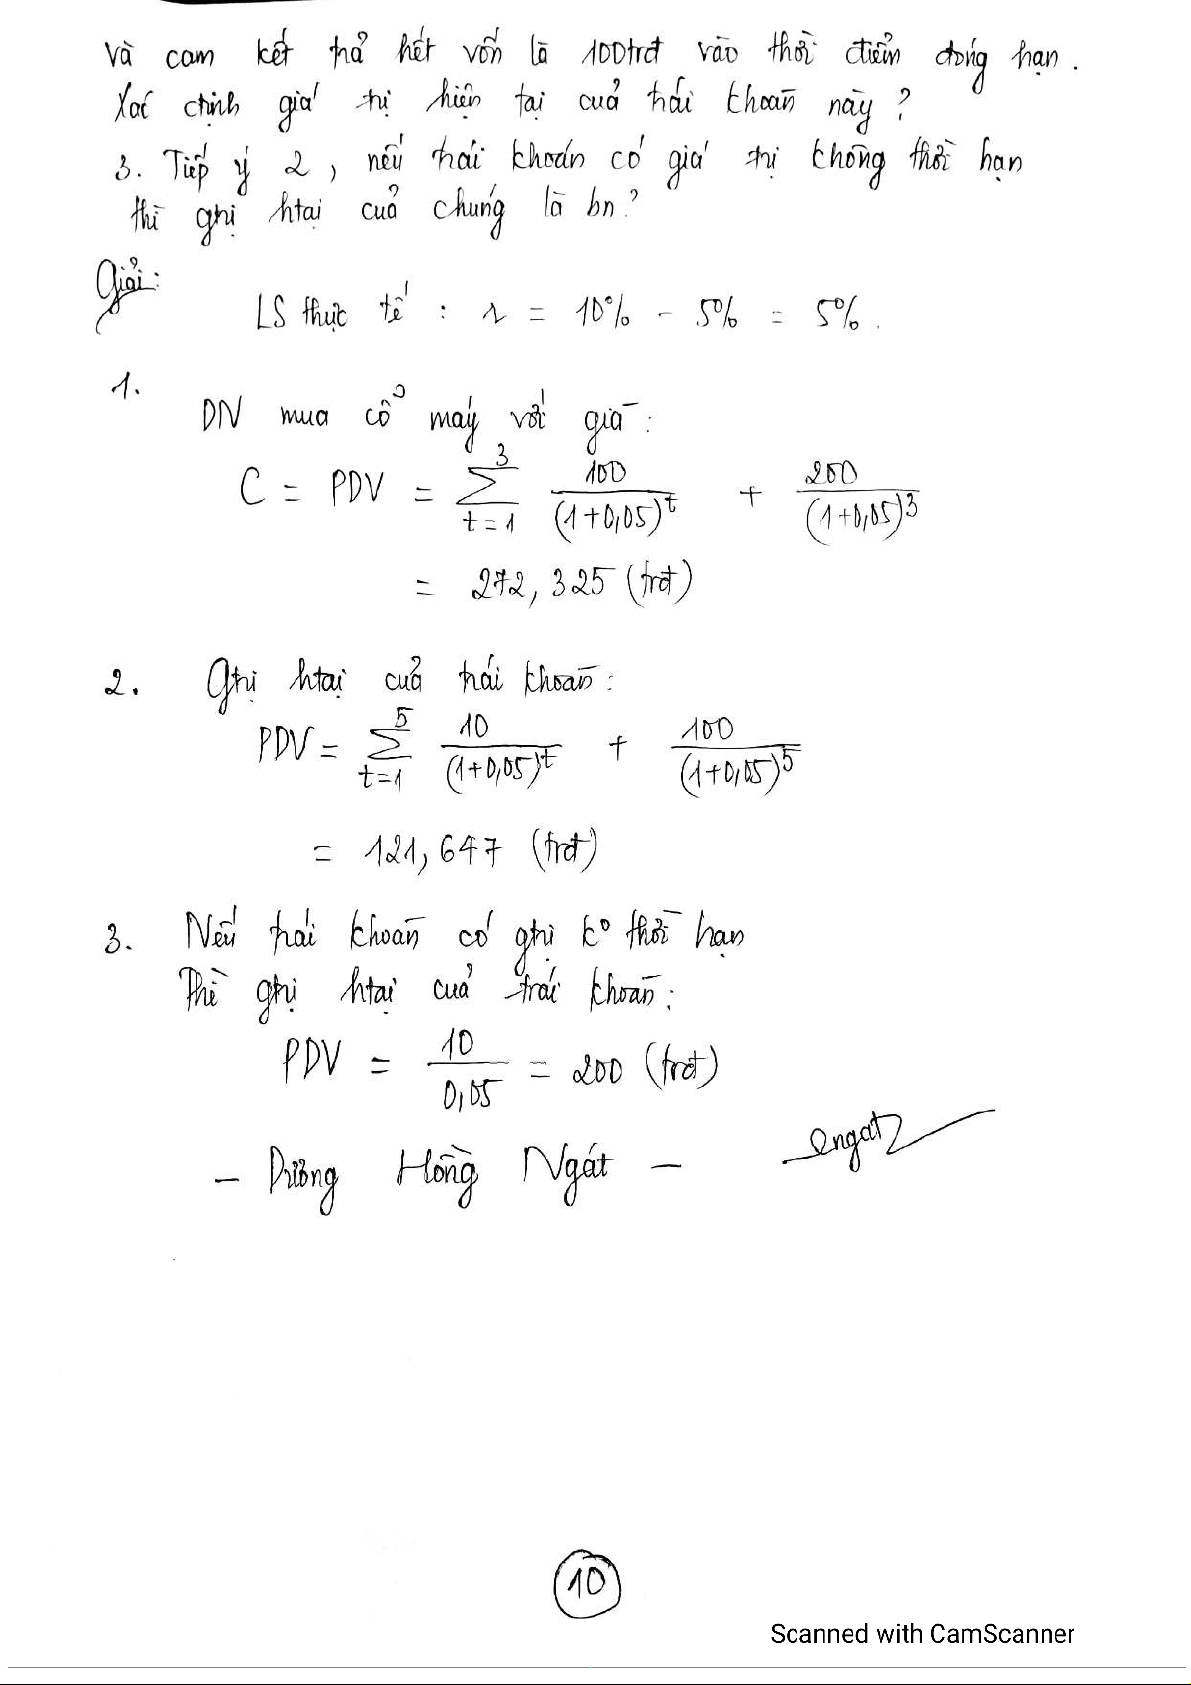 và cam kết trả hết vốn là 100trđ vào thời điểm đóng hạn.
Xác định giá trị hiện tại của trái khoán này?
3. Tiếp ý 2, nếu trái khoán có giá trị không thời hạn
thì gtrị htại của chúng là bn?
Giải:
LS thực tế : r = 10% - 5% = 5%.
1.
DN mua cổ máy với giá:
C = PDV = ∑_{t=1}^{3} 100/(1+0,05)^t + 200/(1+0,05)^3
= 272,325 (trđ)
2. Gtrị htại của trái khoán:
PDV = ∑_{t=1}^{5} 10/(1+0,05)^t + 100/(1+0,05)^5
= 121,647 (trđ)
3. Nếu trái khoán có gtrị k° thời hạn
Thì gtrị htại của trái khoán:
PDV = 10/0,05 = 200 (trđ)
- Dương Hồng Ngát - engat
10
Scanned with CamScanner